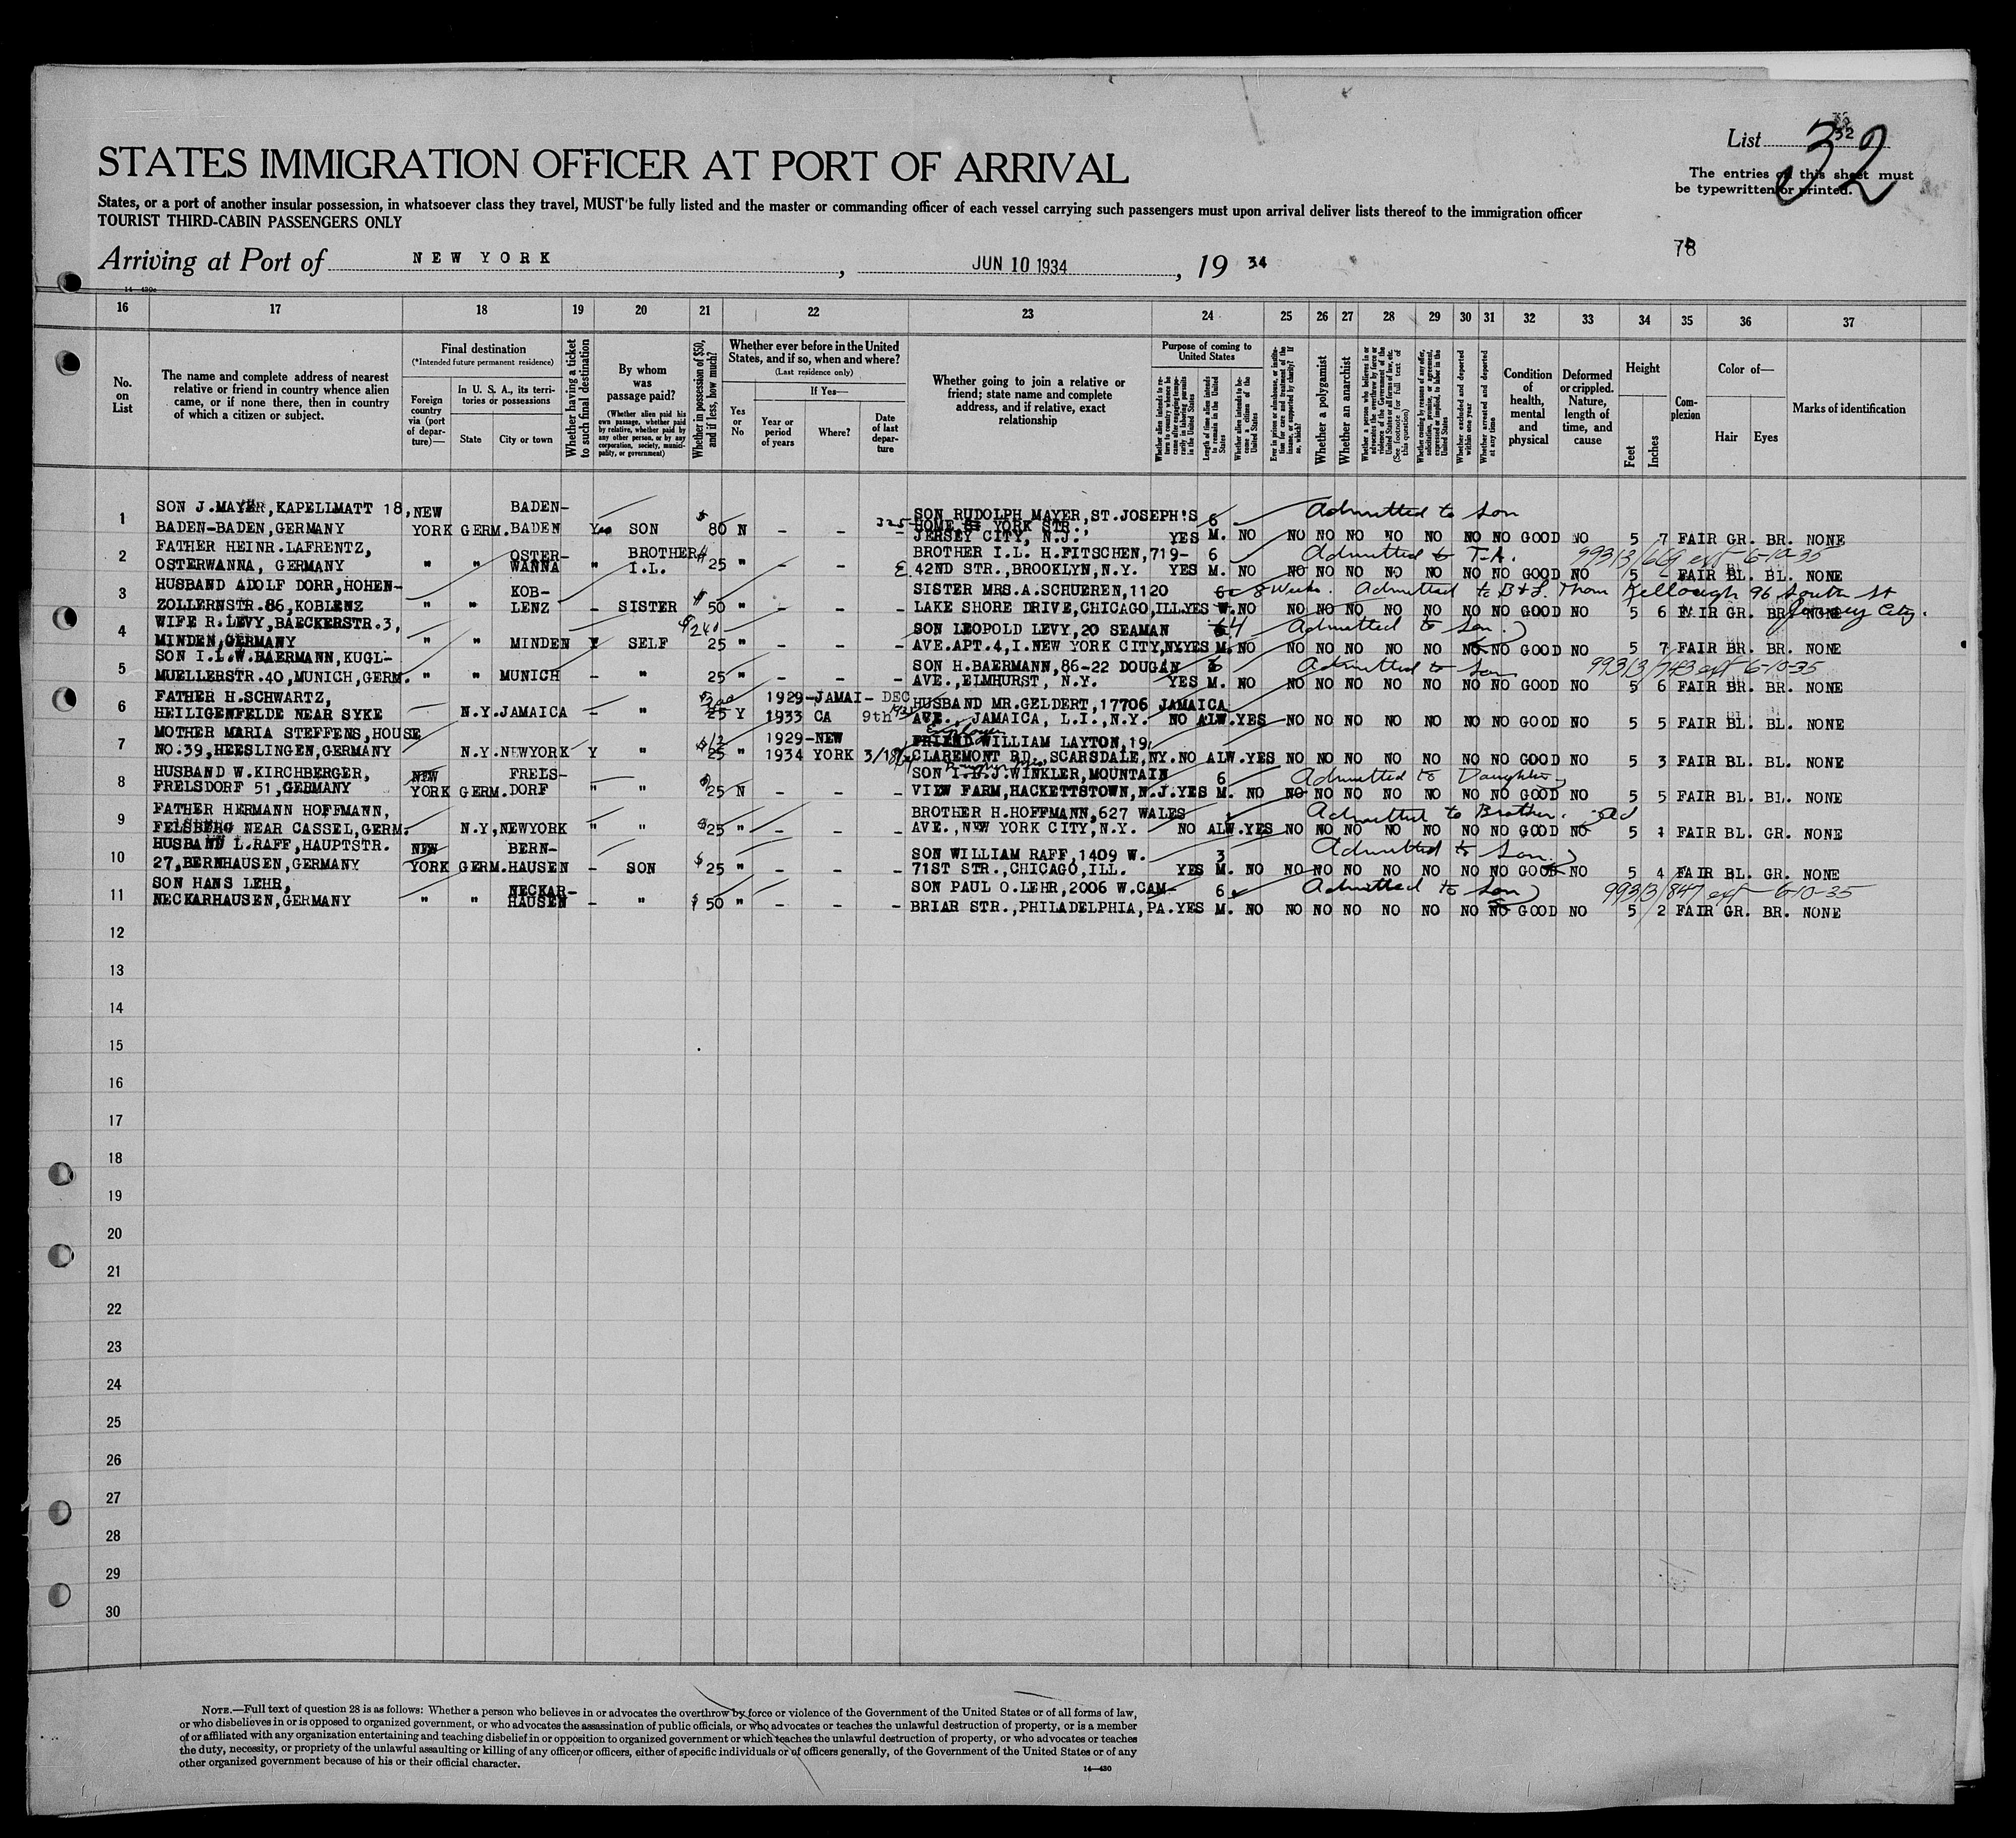 List 32
32
STATES IMMIGRATION OFFICER AT PORT OF ARRIVAL
The entries of this sheet must
be typewritten or printed.
States, or a port of another insular possession, in whatsoever class they travel, MUST be fully listed and the master or commanding officer of each vessel carrying such passengers must upon arrival deliver lists thereof to the immigration officer
TOURIST THIRD-CABIN PASSENGERS ONLY
78
Arriving at Port of NEW YORK, JUN 10 1934, 19 34
16 17 18 19 20 21 22 23 24 25 26 27 28 29 30 31 32 33 34 35 36 37
No. on List
The name and complete address of nearest relative or friend in country whence alien came, or if none there, then in country of which a citizen or subject.
Final destination
(*Intended future permanent residence)
Foreign country via (port of departure)—
In U. S. A., its territories or possessions
State
City or town
Whether having a ticket to such final destination
By whom was passage paid?
(Whether alien paid his own passage, whether paid by relative, whether paid by any other person, or by any corporation, society, municipality, or government)
Whether in possession of $50, and if less, how much?
Whether ever before in the United States, and if so, when and where?
(Last residence only)
Yes or No
If Yes—
Year or period of years
Where?
Date of last departure
Whether going to join a relative or friend; state name and complete address, and if relative, exact relationship
Purpose of coming to United States
Length of time alien intends to remain in the United States
Whether alien intends to become a citizen of the United States
Whether a polygamist
Whether an anarchist
Whether excluded and deported within one year
Whether arrested and deported at any time
Condition of health, mental and physical
Deformed or crippled. Nature, length of time, and cause
Height
Feet
Inches
Complexion
Color of—
Hair
Eyes
Marks of identification
1 SON J.MAYER,KAPELLMATT 18, NEW BADEN- $ SON RUDOLPH MAYER,ST.JOSEPH'S 6 Admitted to son
BADEN-BADEN,GERMANY YORK GERM.BADEN Yes SON 80 N - - - 325 HOME YORK STR.,
JERSEY CITY, N.J. YES M. NO NO NO NO NO NO NO NO GOOD NO 5 7 FAIR GR. BR. NONE
2 FATHER HEINR.LAFRENTZ, OSTER- BROTHER BROTHER I.L. H.FITSCHEN,719- 6 Admitted to T-A. 99313/669 ext 6-10-35
OSTERWANNA, GERMANY " " WANNA " I.L. 25 " - - 42ND STR.,BROOKLYN,N.Y. YES M. NO NO NO NO NO NO NO NO GOOD NO 5 FAIR BL. BL. NONE
3 HUSBAND ADOLF DORR,HOHEN- KOB- $ SISTER MRS.A.SCHUEREN,1120 8 Weeks. Admitted to B&L. Thom Kellough 96 South St
ZOLLERNSTR.86,KOBLENZ " " LENZ - SISTER 50 " - - - LAKE SHORE DRIVE,CHICAGO,ILL.YES NO NO NO NO NO NO NO NO GOOD NO 5 6 FAIR GR. BR. NONE Jersey City.
4 WIFE R.LEVY,BAECKERSTR.3, $240 SON LEOPOLD LEVY,20 SEAMAN 4 Admitted to son.
MINDEN,GERMANY " " MINDEN Y SELF 25 " - - - AVE.APT.4,I.NEW YORK CITY,NY.YES M. NO NO NO NO NO NO NO NO GOOD NO 5 7 FAIR BR. BR. NONE
5 SON I.L.W.BAERMANN,KUGL- SON H.BAERMANN,86-22 DOUGAN 6 Admitted to son 99313/743 ext 6-10-35
MUELLERSTR.40,MUNICH,GERM. " " MUNICH - " 25 " - - - AVE.,ELMHURST, N.Y. YES M. NO NO NO NO NO NO NO NO GOOD NO 5 6 FAIR BR. BR. NONE
6 FATHER H.SCHWARTZ, 1929-JAMAI- DEC HUSBAND MR.GELDERT,17706 JAMAICA
HEILIGENFELDE NEAR SYKE N.Y.JAMAICA - " 25 Y 1933 CA 9th AVE., JAMAICA, L.I.,N.Y. NO ALW.YES NO NO NO NO NO NO NO GOOD NO 5 5 FAIR BL. BL. NONE
7 MOTHER MARIA STEFFENS,HOUSE 1929-NEW FRIEND WILLIAM LAYTON,19,
NO.39,HEESLINGEN,GERMANY N.Y.NEWYORK Y " 25 " 1934 YORK 3/18 CLAREMONT RD.,SCARSDALE,NY.NO ALW.YES NO NO NO NO NO NO NO GOOD NO 5 3 FAIR BL. BL. NONE
8 HUSBAND W.KIRCHBERGER, NEW FRELS- SON I.L.J.WINKLER,MOUNTAIN 6 Admitted to Daughter
FRELSDORF 51,GERMANY YORK GERM.DORF - " $25 N - - - VIEW FARM,HACKETTSTOWN,N.J.YES M. NO NO NO NO NO NO NO NO GOOD NO 5 5 FAIR BL. BL. NONE
9 FATHER HERMANN HOFFMANN, BROTHER H.HOFFMANN,627 WALES Admitted to Brother.
FELSBERG NEAR CASSEL,GERM. N.Y,NEWYORK " " $25 " - - - AVE.,NEW YORK CITY,N.Y. NO ALW.YES NO NO NO NO NO NO NO GOOD NO 5 FAIR BL. GR. NONE
10 HUSBAND L.RAFF,HAUPTSTR. NEW BERN- SON WILLIAM RAFF,1409 W. 3 Admitted to son.
27,BERNHAUSEN,GERMANY YORK GERM.HAUSEN - SON $25 " - - - 71ST STR.,CHICAGO,ILL. YES M. NO NO NO NO NO NO NO NO GOOD NO 5 4 FAIR BL. GR. NONE
11 SON HANS LEHR, NECKAR- SON PAUL O.LEHR,2006 W.CAM- 6 Admitted to son 99313/847 ext 6-10-35
NECKARHAUSEN,GERMANY " " HAUSEN - " $50 " - - - BRIAR STR.,PHILADELPHIA,PA.YES M. NO NO NO NO NO NO NO NO GOOD NO 5 2 FAIR GR. BR. NONE
12
13
14
15
16
17
18
19
20
21
22
23
24
25
26
27
28
29
30
NOTE.—Full text of question 28 is as follows: Whether a person who believes in or advocates the overthrow by force or violence of the Government of the United States or of all forms of law,
or who disbelieves in or is opposed to organized government, or who advocates the assassination of public officials, or who advocates or teaches the unlawful destruction of property, or is a member
of or affiliated with any organization entertaining and teaching disbelief in or opposition to organized government or which teaches the unlawful destruction of property, or who advocates or teaches
the duty, necessity, or propriety of the unlawful assaulting or killing of any officer or officers, either of specific individuals or of officers generally, of the Government of the United States or of any
other organized government because of his or their official character.
14—430